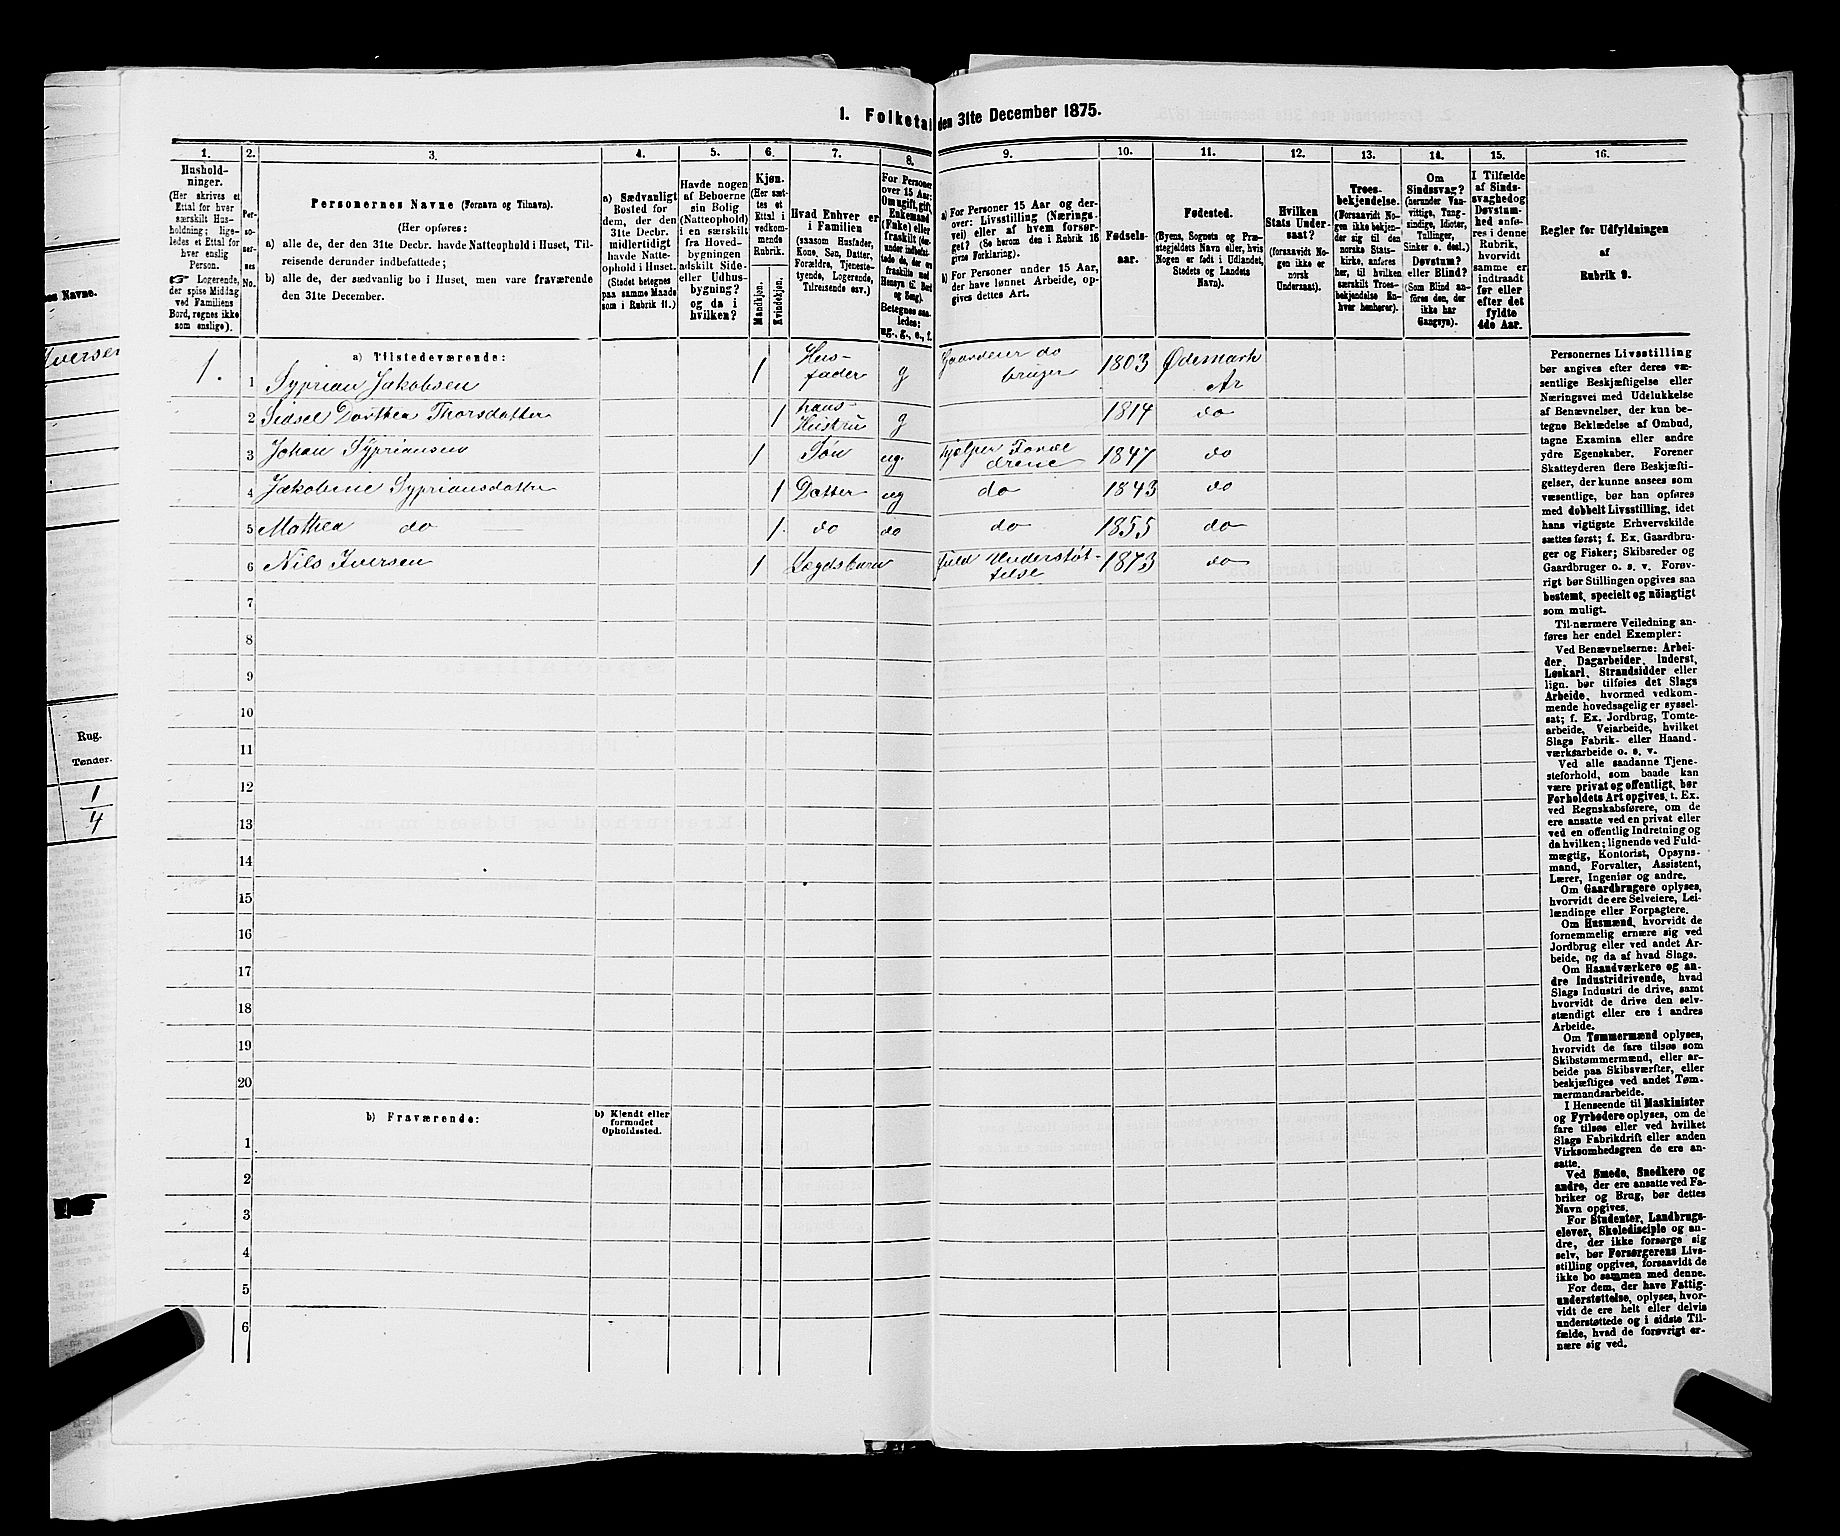 1. Folketal den 31te December 1875.
es Navne.
Iversen
Rug.
Tønder.
1/4
1.
Hushold-
ninger.
(Her skrives et
Ettal for hver
særskilt Hus-
holdning; lige-
ledes et Ettal for
hver enslig
Person.
☞ Logerende,
der spise Middag
ved Familiens
Bord, regnes ikke
som enslige).
2.
Per-
so-
ner-
nes
No.
3.
Personernes Navne (Fornavn og Tilnavn).
(Her opføres:
a) alle de, der den 31te Decbr. havde Natteophold i Huset, Til-
reisende derunder indbefattede;
b) alle de, der sædvanlig bo i Huset, men vare fraværende
den 31te December.
4.
a) Sædvanligt
Bosted for
dem, der den
31te Decbr.
midlertidigt
havde Natte-
ophold i Huset.
(Stedet betegnes
paa samme Maade
som i Rubrik 11.)
5.
Havde nogen
af Beboerne
sin Bolig
(Natteophold)
i en særskilt
fra Hoved-
bygningen
adskilt Side-
eller Udhus-
bygning?
og da i
hvilken?
6.
Kjøn.
(Her sæt-
tes et
Ettal i
vedkom-
mende
Rubrik.
Mandkjøn.
Kvindekjøn.
7.
Hvad Enhver er
i Familien
(saasom Husfader,
Kone, Søn, Datter,
Forældre, Tjeneste-
tyende, Logerende,
Tilreisende osv.)
8.
For Personer
over 15 Aar:
Om ugift, gift,
Enkemand
(Enke) eller
fraskilt (der-
under indbefat-
tede de, der ere
fraskilte med
Hensyn til Bord
og Seng).
Betegnes saa-
ledes:
ug., g., e., f.
9.
a) For Personer 15 Aar og der-
over: Livsstilling (Nærings-
vei) eller af hvem forsør-
get? (Se herom den i Rubrik 16
givne Forklaring).
b) For Personer under 15 Aar,
der have lønnet Arbeide, op-
gives dettes Art.
10.
Fødsels-
aar.
11.
Fødested.
(Byens, Sognets og Præ-
stegjeldets Navn eller, hvis
Nogen er født i Udlandet,
Stedets og Landets
Navn).
12.
Hvilken
Stats Under-
saat?
(forsaavidt No-
gen ikke er
norsk
Undersaat).
13.
Troes-
bekjendelse.
(Forsaavidt No-
gen ikke bekjen-
der sig til den
norske Stats-
kirke, anføres
her, til hvilken
særskilt Troes-
bekjendelse En-
hver henhører).
14.
Om
Sindssvag?
(herunder Van-
vittige, Tung-
sindige, Idioter,
Tullinger,
Sinker o. desl.)
Døvstum?
eller Blind?
(Som Blind an-
føres den, der
ikke har
Gangsyn).
15.
I Tilfælde
af Sinds-
svaghed og
Døvstum-
hed anfø-
res i denne
Rubrik,
hvorvidt
samme er
indtraadt
før eller
efter det
fyldte
4de Aar.
16.
Regler for Udfyldningen
af
Rubrik 9.
a) Tilstedeværende:
1. 1 Syprian Jakobsen 1 Hus-
fader g Gaardeier do
bruger 1803 Ødemark
Ar
2 Sidsel Dorthea Thorsdatter 1 hans
Hustru g 1814 do
3 Johan Sypriansen 1 Søn ug. hjælper Foræl
drene 1847 do
4 Jakobine Sypriansdatter 1 Datter ug do 1843 do
5 Mathea do 1 do do do 1855 do
6 Nils Iversen 1 Lægdsbarn fuld Understøt-
telse 1873 do
7
8
9
10
11
12
13
14
15
16
17
18
19
20
b) Fraværende:
b) Kjendt eller
formodet
Opholdssted.
1
2
3
4
5
6
Personernes Livsstilling
bør angives efter deres væ-
sentlige Beskjæftigelse eller
Næringsvei med Udelukkelse
af Benævnelser, der kun be-
tegne Beklædelse af Ombud,
tagne Examina eller andre
ydre Egenskaber. Forener
Skatteyderen flere Beskjæfti-
gelser, der kunne ansees som
væsentlige, bør han opføres
med dobbelt Livsstilling, idet
hans vigtigste Erhvervskilde
sættes først; f. Ex. Gaardbru-
ger og Fisker; Skibsreder og
Gaardbruger o. s. v. Forøv-
rigt bør Stillingen opgives saa
bestemt, specielt og nøiagtigt
som muligt.
Til nærmere Veiledning an-
føres her endel Exempler:
Ved Benævnelserne: Arbei-
der, Dagarbeider, Inderst,
Løskarl, Strandsidder eller
lign. bør tilføies det Slags
Arbeide, hvormed vedkom-
mende hovedsagelig er syssel-
sat; f. Ex. Jordbrug, Tomte-
arbeide, Veiarbeide, hvilket
Slags Fabrik- eller Haand-
værksarbeide o. s. v.
Ved alle saadanne Tjene-
steforhold, som baade kan
være privat og offentligt, bør
Forholdets Art opgives, t. Ex.
ved Regnskabsførere, om de
ere ansatte ved en privat eller
ved en offentlig Indretning og
da hvilken; lignende ved Fuld-
mægtig, Kontorist, Opsyns-
mand, Forvalter, Assistent,
Lærer, Ingeniør og andre.
Om Gaardbrugere oplyses,
hvorvidt de ere Selveiere, Lei-
lændinge eller Forpagtere.
Om Husmænd, hvorvidt de
fornemmelig ernære sig ved
Jordbrug eller ved andet Ar-
beide, og da af hvad Slags.
Om Haandværkere og an-
dre Industridrivende, hvad
Slags Industri de drive, samt
hvorvidt de drive den selv-
stændigt eller ere i andres
Arbeide.
Om Tømmermænd oplyses,
hvorvidt de fare tilsøs som
Skibstømmermænd, eller ar-
beide paa Skibsværfter, eller
beskjæftiges ved andet Tøm-
mermandsarbeide.
I Henseende til Maskinister
og Fyrbødere oplyses, om de
fare tilsøs eller ved hvilket
Slags Fabrikdrift eller anden
Virksomhedsgren de ere an-
satte.
Ved Smede, Snedkere og
andre, der ere ansatte ved Fa-
briker og Brug, bør dettes
Navn opgives.
For Studenter, Landbrugs-
elever, Skoledisciple og an-
dre, der ikke forsørge sig
selv, bør Forsørgerens Livs-
stilling opgives, forsaavidt de
ikke bo sammen med denne.
For dem, der have Fattig-
understøttelse, oplyses, hvor-
vidt de ere helt eller delvis
understøttede og i sidste Til-
fælde, hvad de forøvrigt er-
nære sig ved.